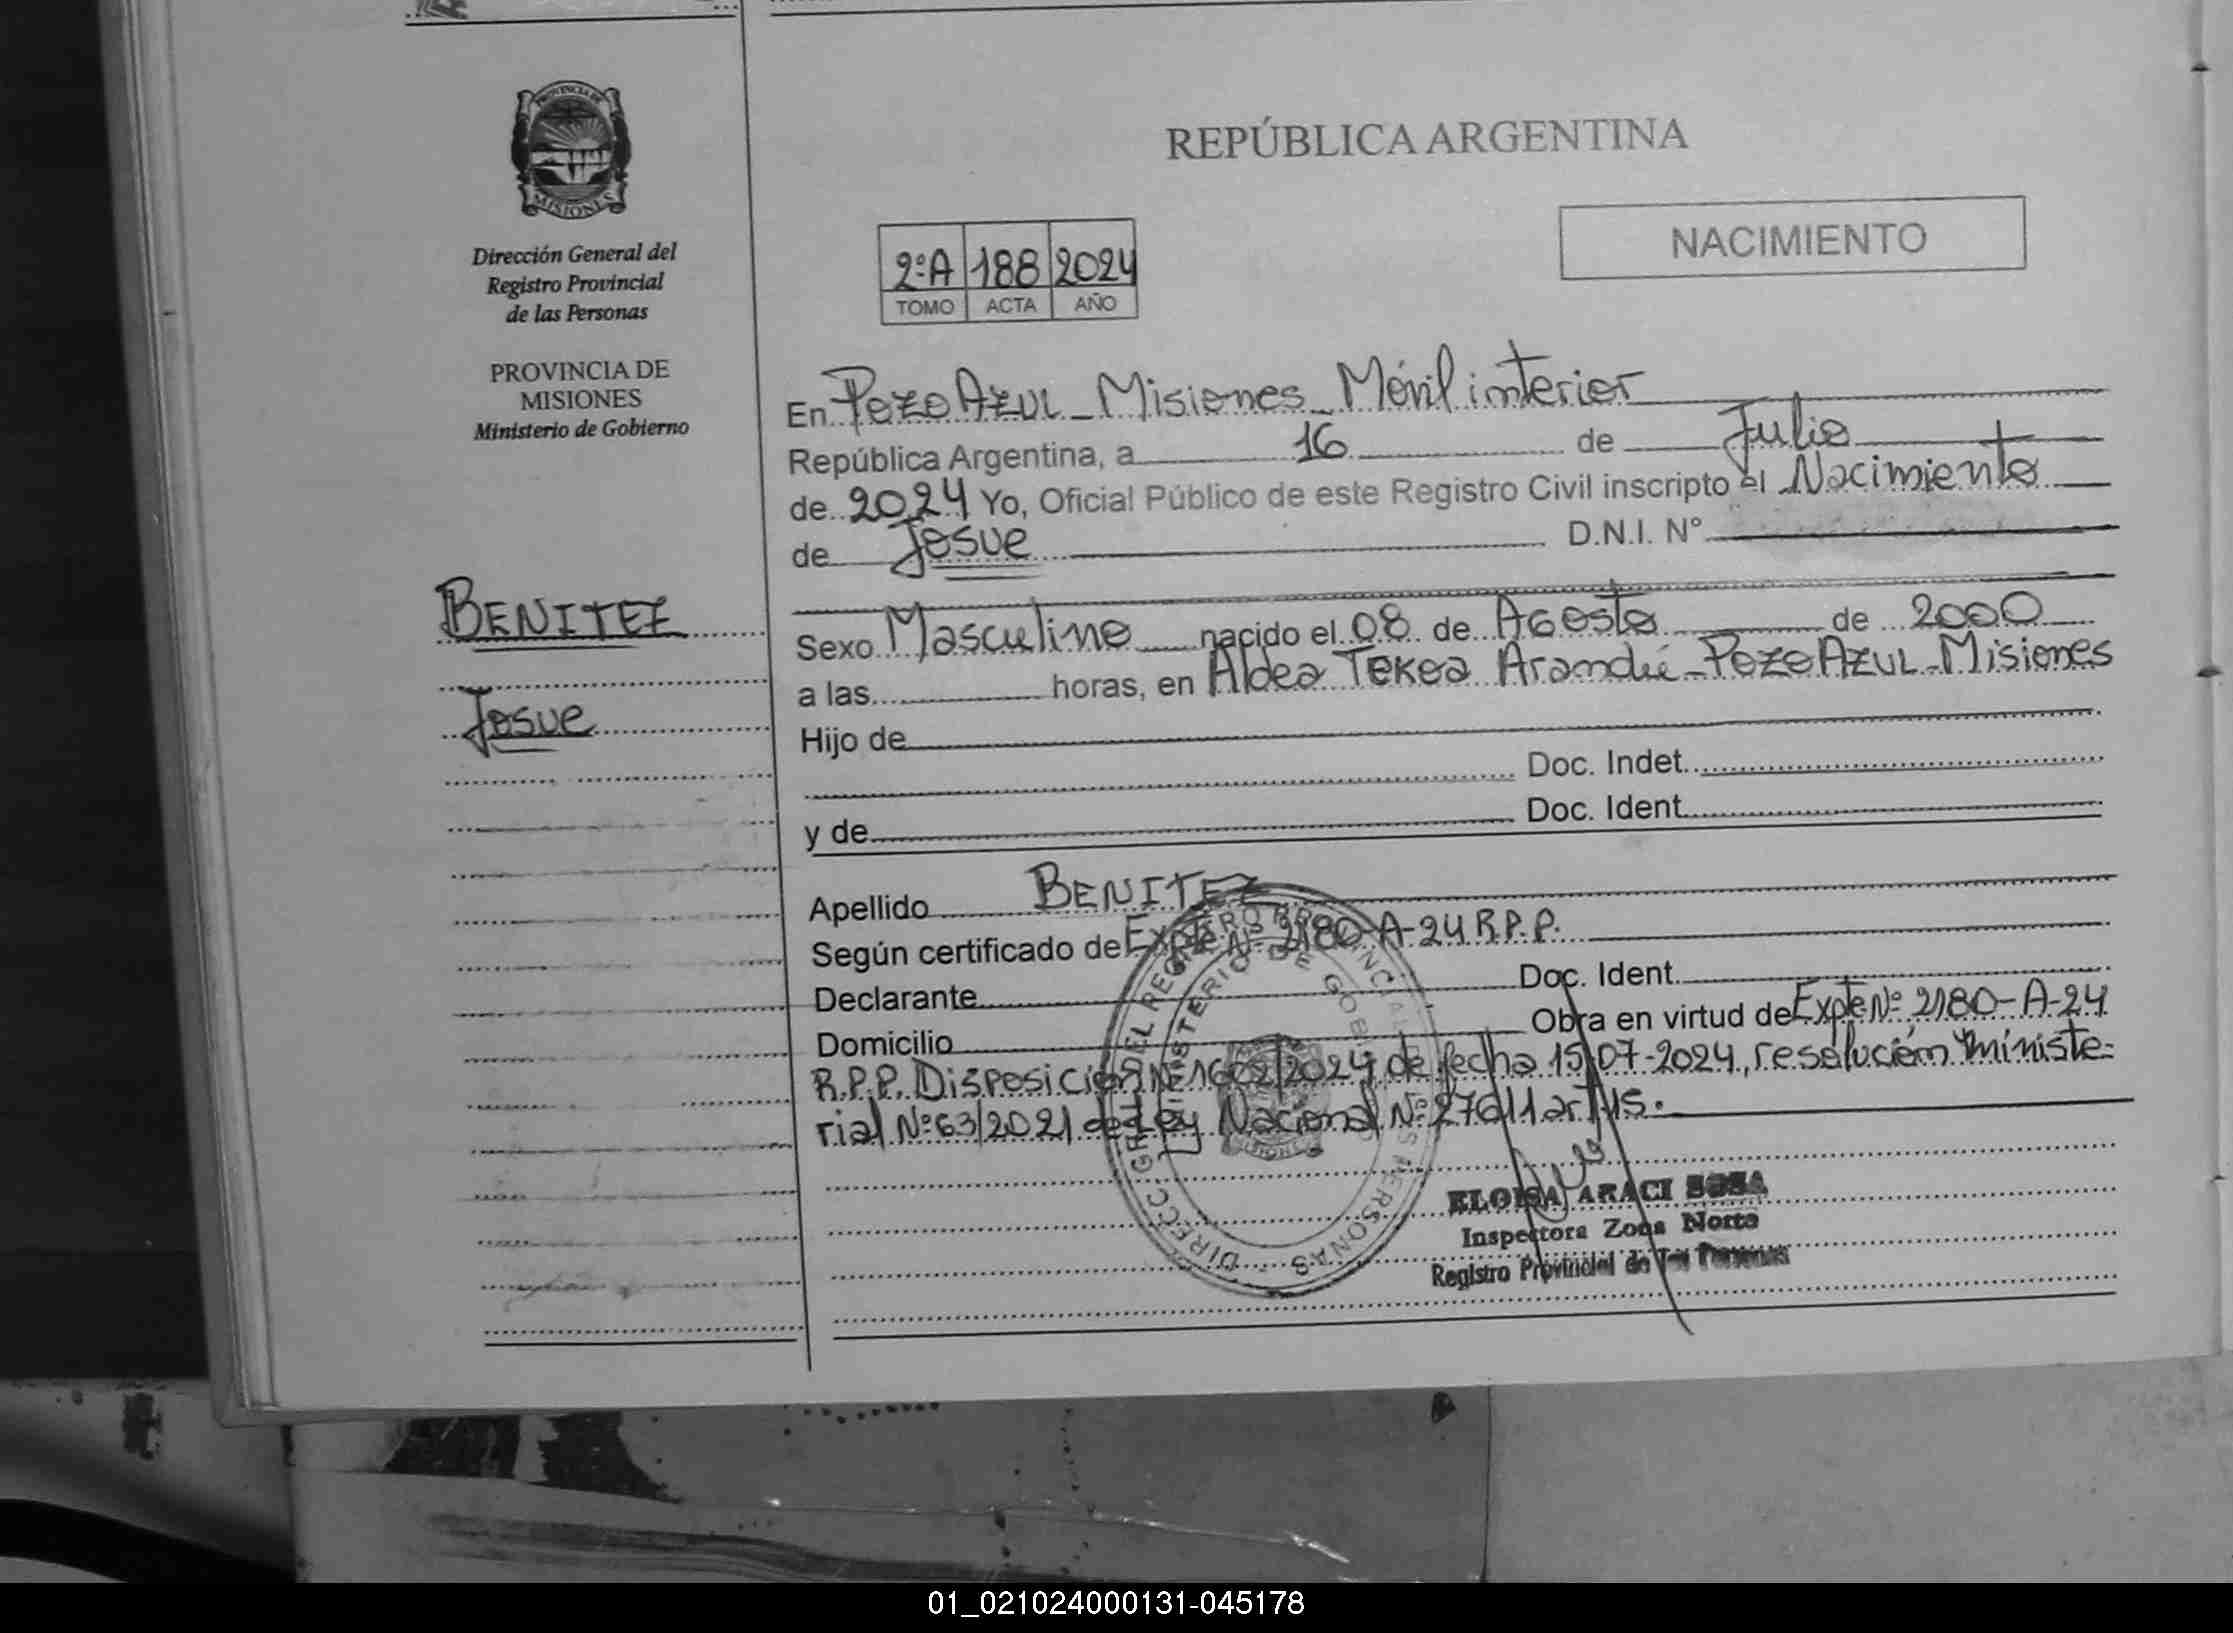 PROVINCIA DE
MISIONES
Dirección General del
Registro Provincial
de las Personas
PROVINCIA DE
MISIONES
Ministerio de Gobierno
BENITEZ
Josue
REPÚBLICA ARGENTINA
NACIMIENTO
2ºA 188 2024
TOMO ACTA AÑO
En Pozo Azul - Misiones - Móvil interior
República Argentina, a 16 de Julio
de 2024 Yo, Oficial Público de este Registro Civil inscripto el Nacimiento
de Josue D.N.I. N°
Sexo Masculino nacido el 08 de Agosto de 2000
a las horas, en Aldea Tekoa Arandú - Pozo Azul - Misiones
Hijo de
Doc. Indet.
y de Doc. Ident.
Apellido BENITEZ
Según certificado de Expte Nº 2180-A-24 R.P.P.
Declarante Doc. Ident.
Domicilio Obra en virtud de Expte Nº 2180-A-24
R.P.P. Disposición Nº 1602/2024 de fecha 15-07-2024, resolución ministe-
rial Nº 63/2021 de Ley Nacional Nº 27611 art 15.
DIRECC. GRAL. DEL REGISTRO PROVINCIAL DE LAS PERSONAS
MINISTERIO DE GOBIERNO
ELOISA ARACI SOSA
Inspectora Zona Norte
Registro Provincial de las Personas
01_021024000131-045178